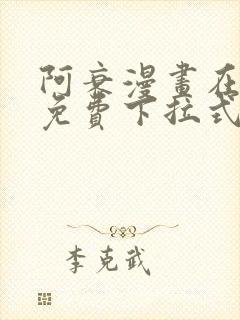 阿衰漫畫在
免費下拉式
李克武